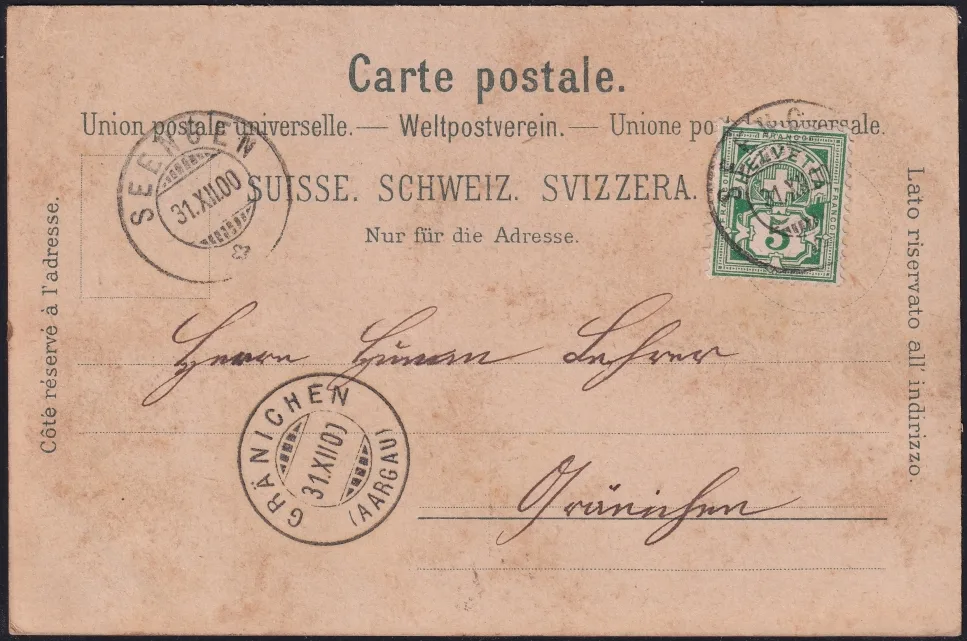 Carte postale.
Union postale universelle. — Weltpostverein. — Unione postale universale.
SUISSE. SCHWEIZ. SVIZZERA.
Nur für die Adresse.
Côté réservé à l'adresse.
Lato riservato all' indirizzo.
SEENGEN
31.XII.00
FRANCO
HELVETIA
5
Herrn Lehrer
Gränichen
GRÄNICHEN
31.XII.00
(AARGAU)